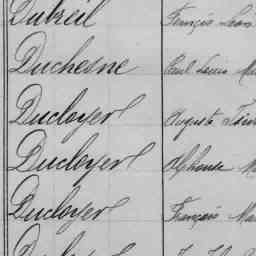 Dubreil François Léon
Duchesne Paul Louis
Ducloyer Auguste
Ducloyer Alphonse
Ducloyer François